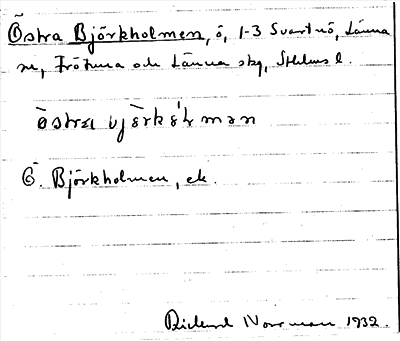 Östra Björkholmen, ö, 1-3 Svartnö, Länna
sn, Frötuna och Länna skg, Sthlms l.
östra bjö̀rkhól mən
Ö. Björkholmen, ek.
Rickard Norrman 1932.